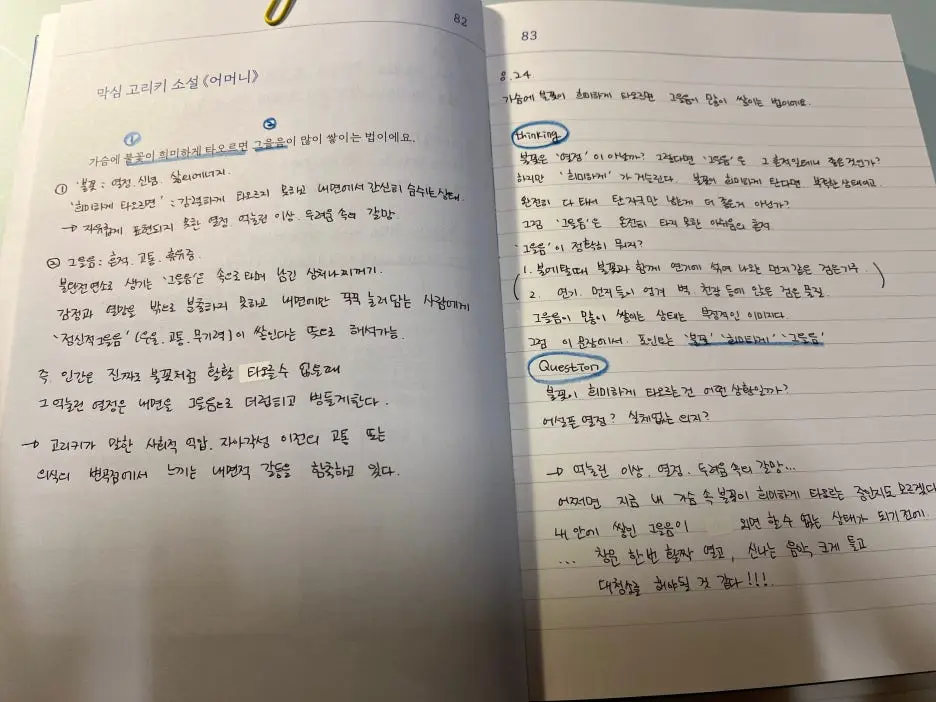 82
막심 고리키 소설 《어머니》
① ②
가슴에 불꽃이 희미하게 타오르면 그을음이 많이 쌓이는 법이에요.
① '불꽃 : 열정. 신념. 삶의에너지.
'희미하게 타오르면' : 강력하게 타오르지 못하고 내면에서 간신히 숨쉬는상태.
→ 자유롭게 표현되지 못한 열정. 억눌린 이상. 두려움 속에 갈망.
② 그을음 : 흔적. 고통. 후유증.
불완전연소로 생기는 '그을음'은 속으로타며 남긴 상처나찌꺼기.
감정과 열망을 밖으로 분출하지 못하고 내면에만 꾹꾹 눌러담는 사람에게
'정신적그을음' (우울. 고통. 무기력)이 쌓인다는 뜻으로 해석가능.
즉. 인간은 진짜로 불꽃처럼 활활 타오를수 없을때
그 억눌린 열정은 내면을 그을음으로 더럽히고 병들게한다.
→ 고리키가 말한 사회적 억압. 자아각성 이전의 고통 또는
의식의 변곡점에서 느끼는 내면적 갈등을 함축하고 있다.
83
8.24
가슴에 불꽃이 희미하게 타오르면 그을음이 많이 쌓이는 법이에요.
thinking
불꽃은 '열정' 이 아닐까? 그렇다면 '그을음'은 그 흔적일테니 좋은것인가?
하지만 '희미하게' 가 거슬린다. 불꽃이 희미하게 탄다면 부정한상태이고
완전히 다 타서 탄자국만 남는게 더 좋은거 아닌가?
그럼 '그을음'은 온전히 타지 못한 아쉬움의 흔적
'그을음'이 정확히 뭐지?
(1. 불에탈때 불꽃과 함께 연기에 섞여 나오는 먼지같은 검은가루.
2. 연기. 먼지 등이 엉겨 벽. 천장 등에 앉은 검은 물질.)
그을음이 많이 쌓이는 상태는 부정적인 이미지다.
그럼 이 문장에서 포인트는 '불꽃' '희미하게' '그을음'
Question
불꽃이 희미하게 타오르는건 어떤 상황일까?
어설픈 열정? 실체없는 의지?
→ 억눌린 이상. 열정. 두려움 속의 갈망...
어쩌면 지금 내 가슴 속 불꽃이 희미하게 타오르는 중인지도 모르겠다
내 안에 쌓인 그을음이 외면 할수 없는 상태가 되기 전에.
... 창문 한번 활짝 열고, 신나는 음악 크게 틀고
대청소를 해야될 것 같다!!!